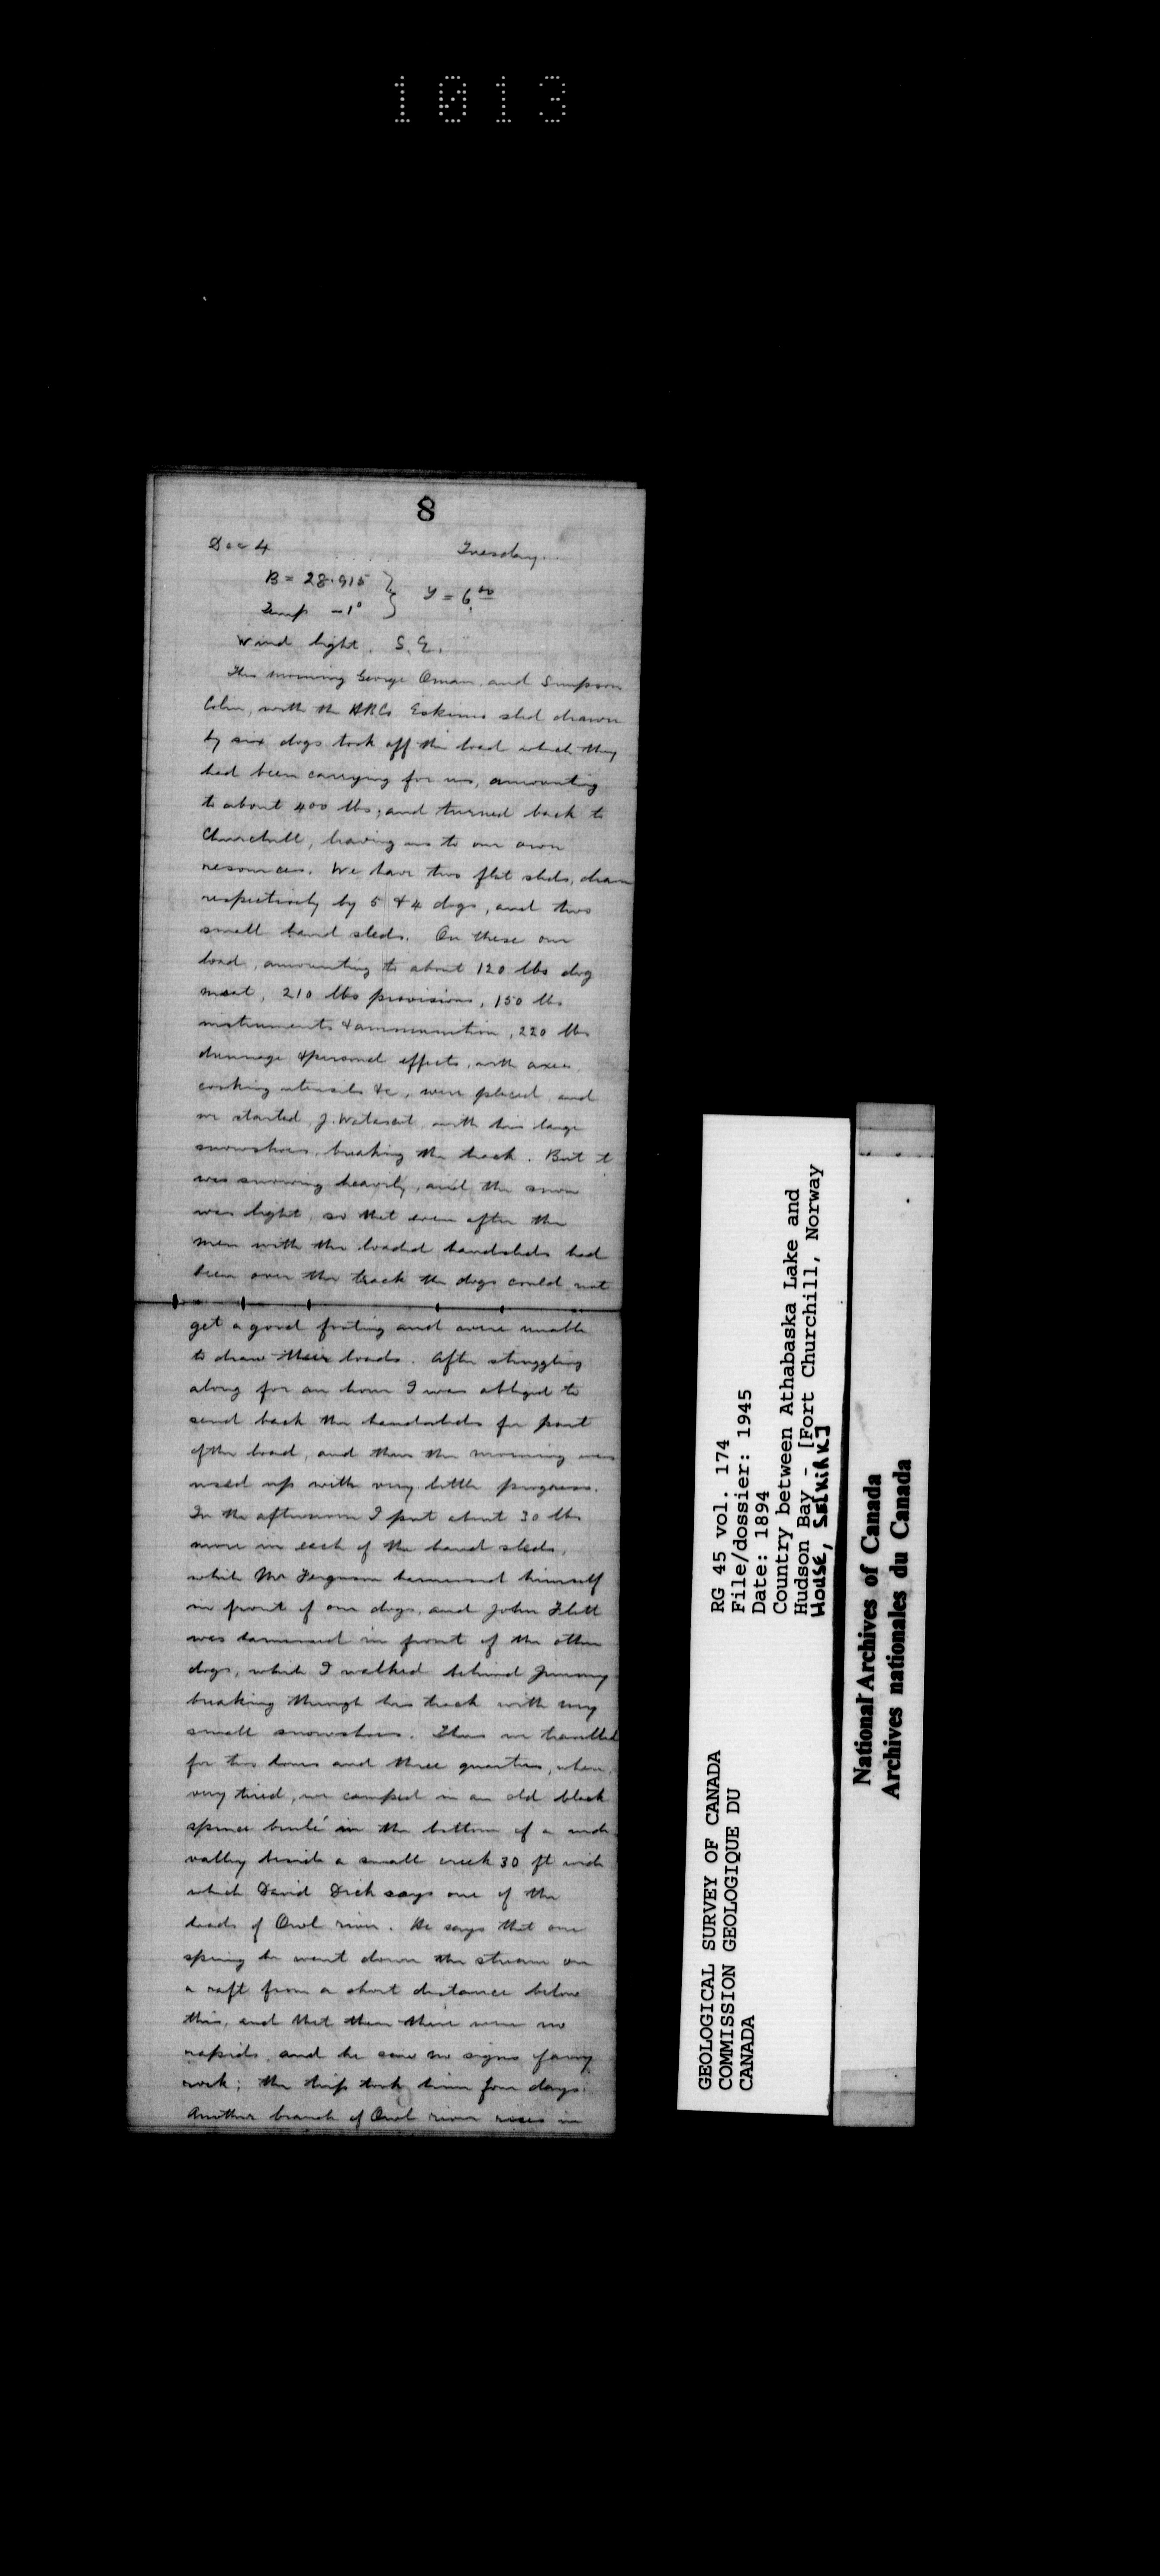 1013
8
Dec 4 Tuesday.
B = 28.915 } T = 6.00
Temp -1°
Wind light. S.E.
This morning George Oman and Simpson
Colin, with the HBCo Eskimo sled drawn
by six dogs took off the load which they
had been carrying for us, amounting
to about 400 lbs, and turned back to
Churchill, leaving us to our own
resources. We have two flat sleds, drawn
respectively by 5 & 4 dogs, and two
small hand sleds. On these our
load, amounting to about 120 lbs dog
meat, 210 lbs provisions, 150 lbs
instruments & ammunition, 220 lbs
dunnage & personal effects, with axes,
cooking utensils &c, were placed and
we started, J. with his large
snowshoes, breaking the track. But it
was snowing heavily, and the snow
was light, so that even after the
men with the loaded handsleds had
been over the track the dogs could not
get a good footing and were unable
to draw their loads. After struggling
along for an hour I was obliged to
send back the handsleds for part
of the load, and thus the morning was
used up with very little progress.
In the afternoon I put about 30 lbs
more in each of the hand sleds,
while Mr Ferguson harnessed himself
in front of our dogs, and John Flett
was harnessed in front of the other
dogs, while I walked behind Jimmy
breaking through his track with my
small snowshoes. Thus we travelled
for two hours and three quarters, when,
very tired, we camped in an old black
spruce brulé in the bottom of a wide
valley beside a small creek 30 ft wide
which David Dick says one of the
heads of Owl river. He says that one
spring he went down the stream on
a raft from a short distance below
this, and that then there were no
rapids, and he saw no signs of any
rock; the trip took him four days.
Another branch of Owl river rises in
GEOLOGICAL SURVEY OF CANADA
COMMISSION GEOLOGIQUE DU
CANADA
RG 45 vol. 174
File/dossier: 1945
Date: 1894
Country between Athabaska Lake and
Hudson Bay - [Fort Churchill, Norway
House, Selkirk]
National Archives of Canada
Archives nationales du Canada